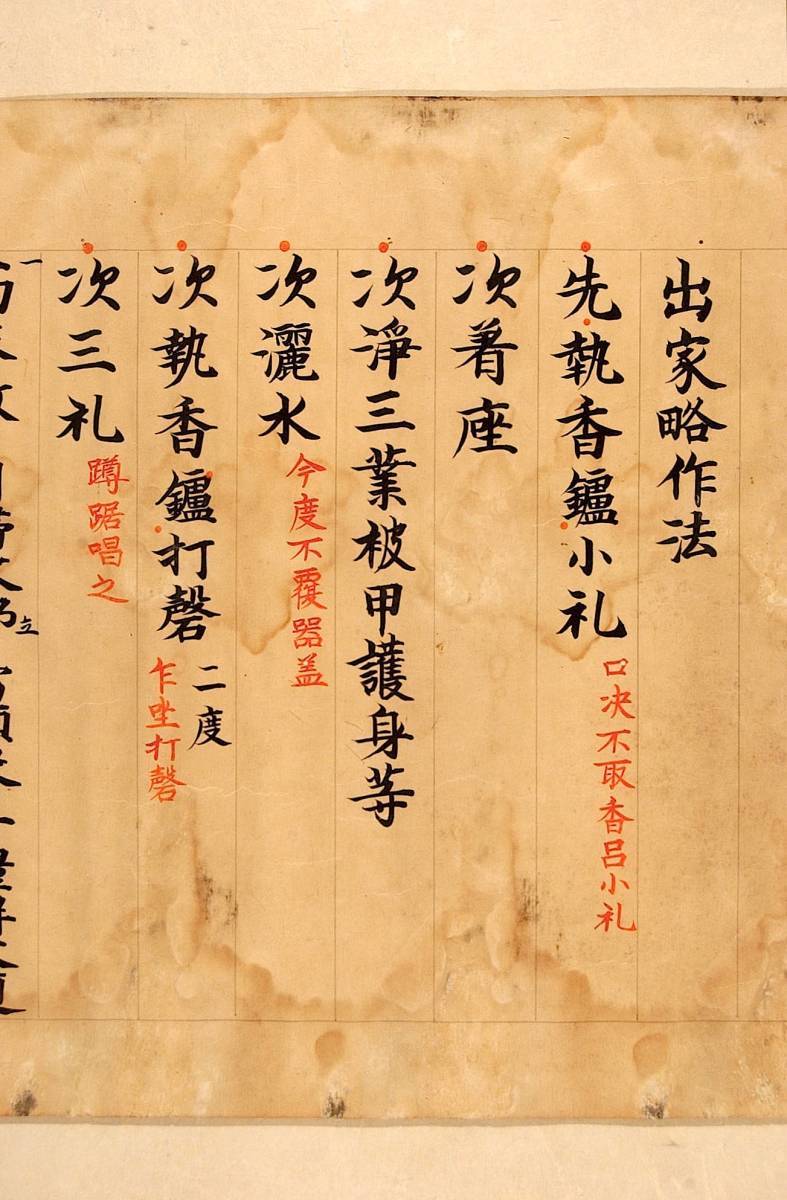 出家略作法
先執香鑪小礼 口决不取香呂小礼
次着座
次淨三業被甲護身等
次灑水 今度不覆器盖
次執香鑪打磬 二度
乍坐打磬
次三礼 蹲踞唱之